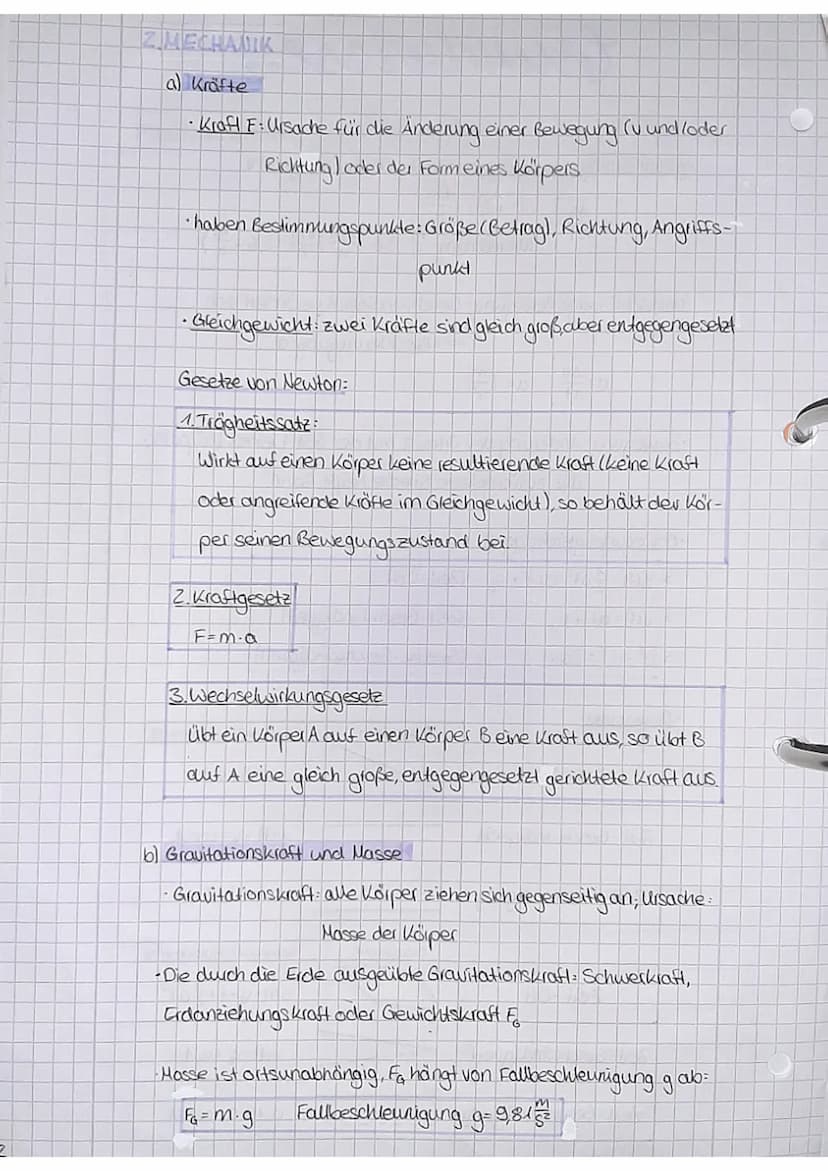 2. MECHANIK
a) Kräfte
· Kraft F: Ursache für die Änderung einer Bewegung (v und/oder
Richtung) oder der Form eines Körpers
· haben Bestimmungspunkte: Größe (Betrag), Richtung, Angriffs-
punkt
· Gleichgewicht: zwei Kräfte sind gleich groß, aber entgegengesetzt
Gesetze von Newton:
1. Trägheitssatz:
Wirkt auf einen Körper keine resultierende Kraft (keine Kraft
oder angreifende Kräfte im Gleichgewicht), so behält der Kör-
per seinen Bewegungszustand bei.
2. Kraftgesetz
F = m · a
3. Wechselwirkungsgesetz
Übt ein Körper A auf einen Körper B eine Kraft aus, so übt B
auf A eine gleich große, entgegengesetzt gerichtete Kraft aus.
b) Gravitationskraft und Masse
· Gravitationskraft: alle Körper ziehen sich gegenseitig an; Ursache:
Masse der Körper
· Die durch die Erde ausgeübte Gravitationskraft: Schwerkraft,
Erdanziehungskraft oder Gewichtskraft F_G
· Masse ist ortsunabhängig, F_G hängt von Fallbeschleunigung g ab:
F_G = m · g Fallbeschleunigung g = 9,81 m/s²
2